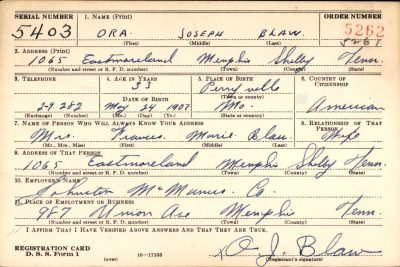 SERIAL NUMBER 1. NAME (Print) ORDER NUMBER
5403 ORA. JOSEPH BLAW. 5262
5261
(First) (Middle) (Last)
2. ADDRESS (Print)
1065 Eastmoreland Memphis Shelby Tenn.
(Number and street or R. F. D. number) (Town) (County) (State)
3. TELEPHONE 4. AGE IN YEARS 5. PLACE OF BIRTH 6. COUNTRY OF CITIZENSHIP
33 Perryville
DATE OF BIRTH (Town or county)
2-9282 May 24 1907 Mo. American
(Exchange) (Number) (Mo.) (Day) (Yr.) (State or country)
7. NAME OF PERSON WHO WILL ALWAYS KNOW YOUR ADDRESS 8. RELATIONSHIP OF THAT PERSON
Mrs. Frances Marie Blaw. Wife
(Mr. Mrs. Miss) (First) (Middle) (Last)
9. ADDRESS OF THAT PERSON
1065 Eastmoreland Memphis Shelby Tenn.
(Number and street or R. F. D. number) (Town) (County) (State)
10. EMPLOYER'S NAME
Johnston McManus Co.
11. PLACE OF EMPLOYMENT OR BUSINESS
987 Union Ave Memphis Tenn.
(Number and street or R. F. D. number) (Town) (County) (State)
I AFFIRM THAT I HAVE VERIFIED ABOVE ANSWERS AND THAT THEY ARE TRUE.
REGISTRATION CARD
D. S. S. Form 1 (over) 16—17105 O. J. Blaw
(Registrant's signature)